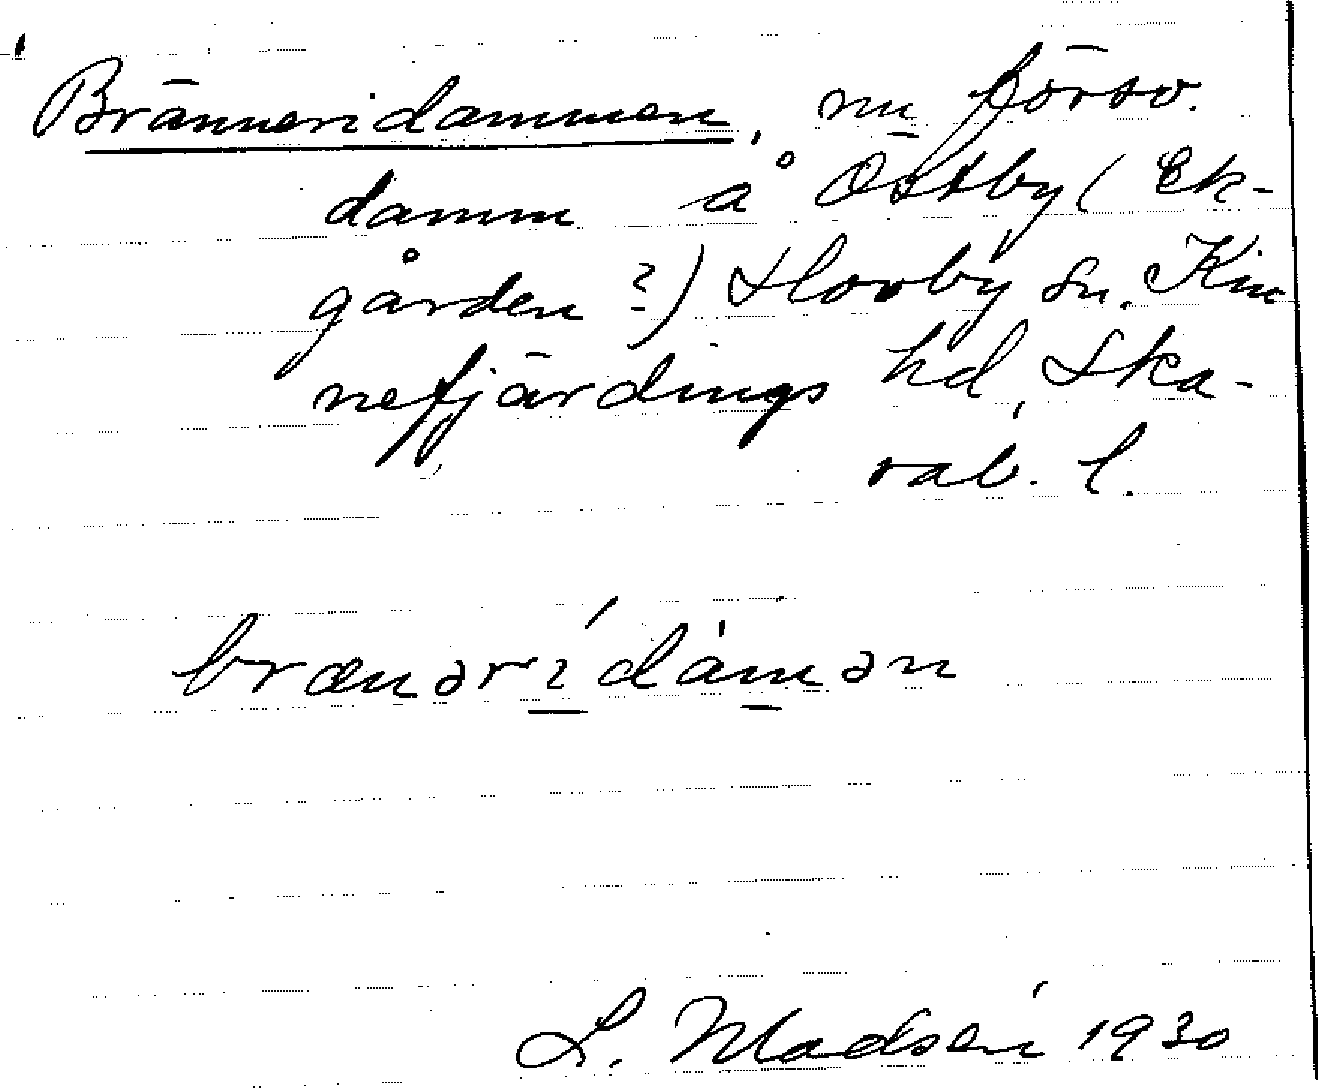 Bränneridammen, nu försv.
damm å Östby (Ek-
gården ?) Slovby sn. Kin
nefjärdings hd, Ska-
rab. l.
brænəri dàmən
L. Madsén 1930